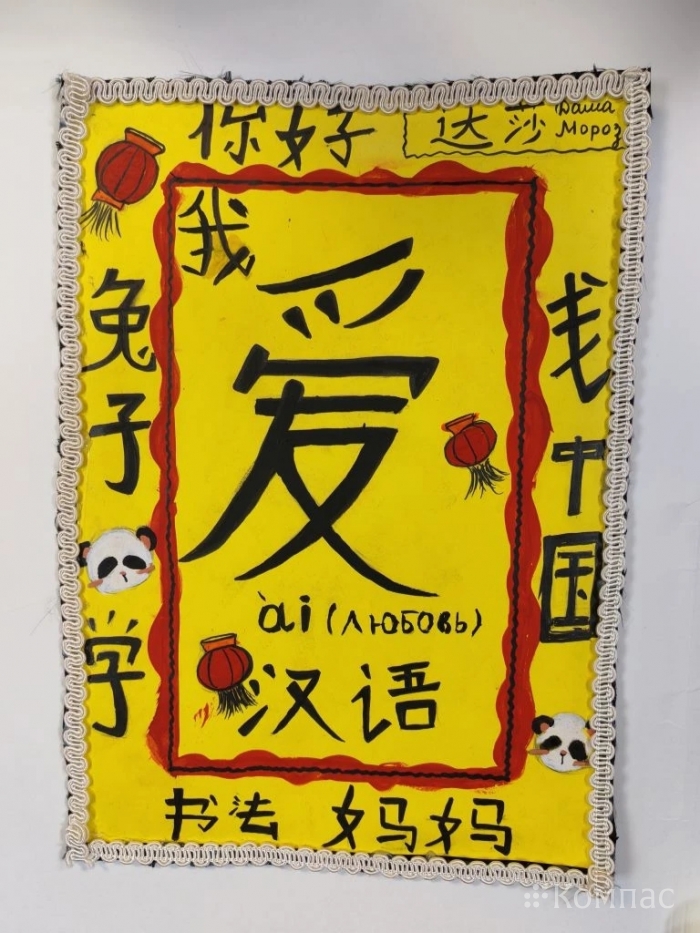 你好
达莎 Даша
Мороз
我
爱
兔子
中国
学
ài (любовь)
汉语
书法 妈妈
Компас